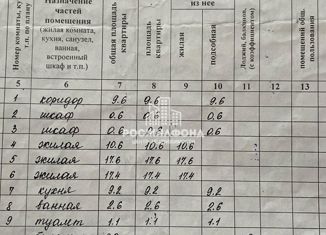 Номер комнаты, ку
по плану
Назначение
частей
помещения
(жилая комната,
кухня, санузел,
ванная,
встроенный
шкаф и т.п.)
общая площадь
квартиры
площадь
квартиры
из нее
жилая
подсобная
Лоджий, балконов,
(с коэффициентом)
помещений общ.
пользования
5 6 7 8 9 10 11 12 13
1 коридор 9.6 9.6 9.6
2 шкаф 0.6 0.6 0.6
3 шкаф 0.6 0.6 0.6
4 жилая 10.6 10.6 10.6
5 жилая 17.6 17.6 17.6
6 жилая 17.4 17.4 17.4
7 кухня 9.2 9.2 9.2
8 ванная 2.6 2.6 2.6
9 туалет 1.1 1.1 1.1